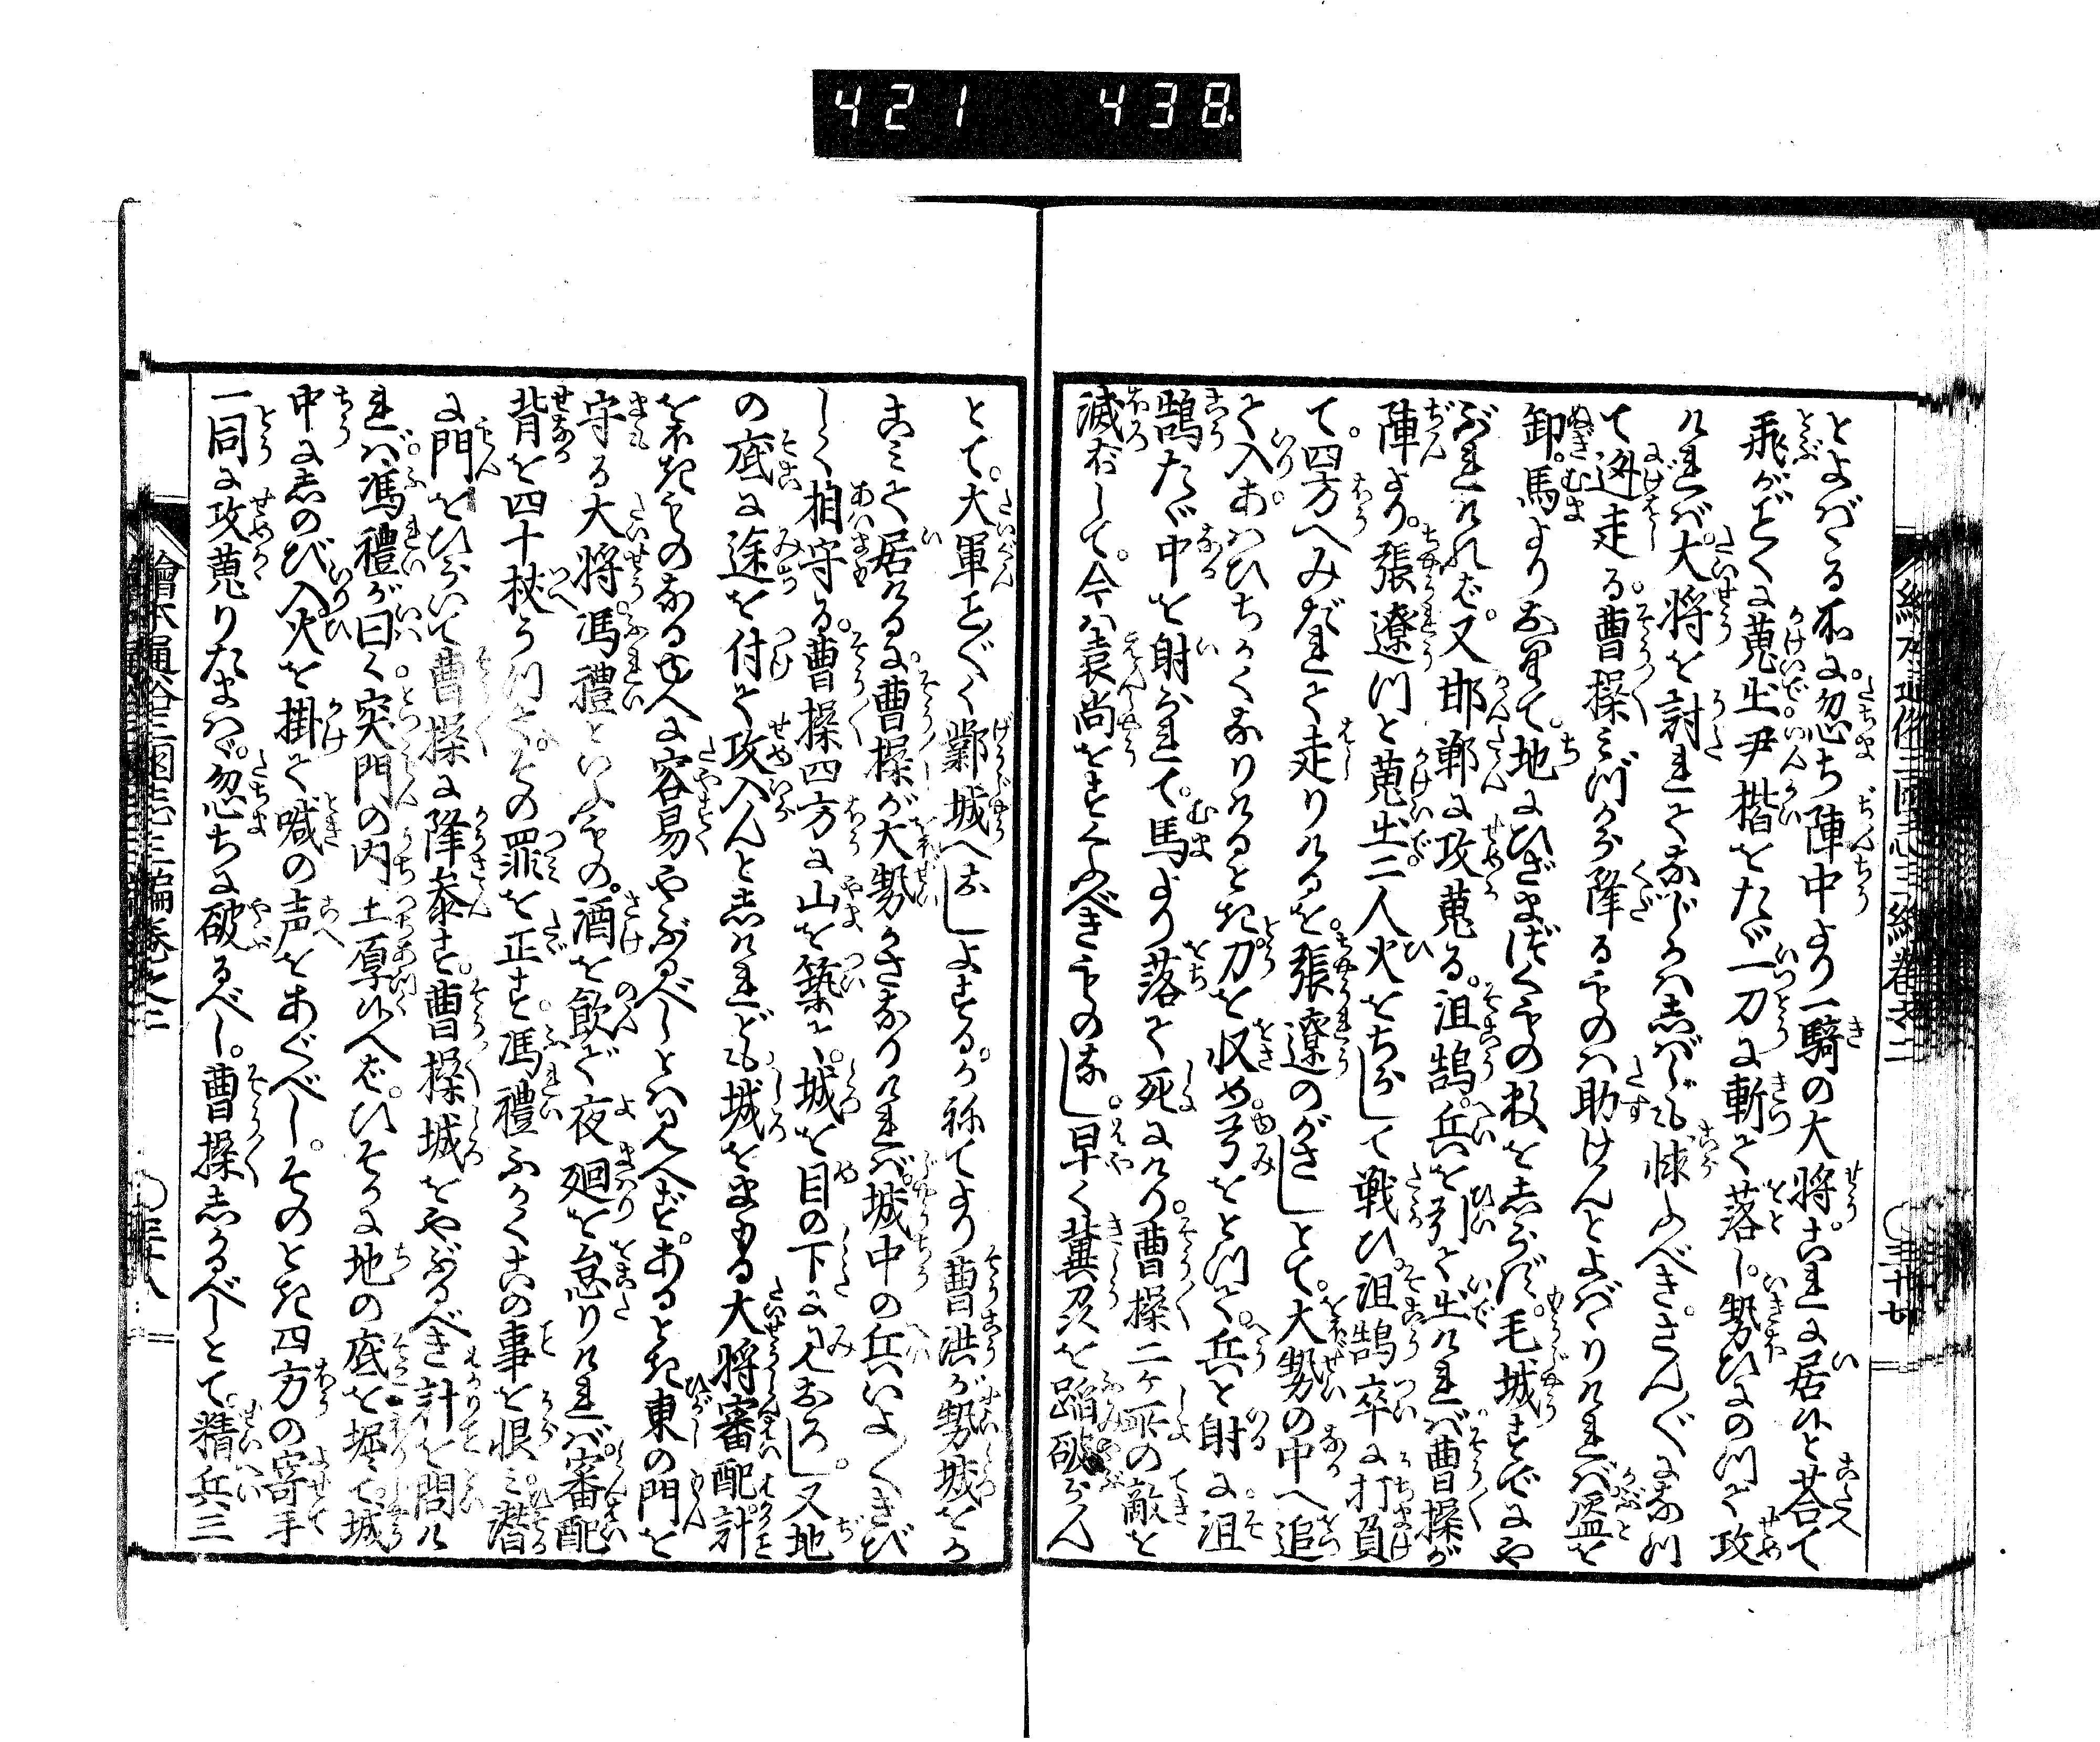 421 438
とよばゝる所に。忽ち陣中より一騎の大将。これに居候と荅て
飛がごとくに蒐出尹楷をたゞ一刀に斬て落し。勢ひにのつて攻
ければ。大将を討れてなじかはしばしも怺ふべき。さん〴〵になつ
て迯走る。曹操みづから降るものハ助けんとよばゝりければ盔を
卸。馬より下りて。地にひざまづくもの数をしらず。毛城すでにや
ぶれければ。又邯鄲に攻蒐る。沮鵠。兵を引て出ければ曹操が
陣より。張遼つと蒐出二人火をちらして戦ひ。沮鵠卒に打負
て。四方へみだれて走りけるを。張遼のがさじとて。大勢の中へ追
て入。あはひちかくなりけるとき。刀を収め。弓をとつて。兵と射に沮
鵠たゞ中を射られて。馬より落て死にけり。曹操二ヶ所の敵を
滅ぼして。今は袁尚をすくふべきものなし。早く冀州を蹈破らん
とて。大軍ことごとく鄴城へおしよする。かねてより曹洪が勢城をか
こみて居けるに。曹操が大勢かさなりければ。城中の兵いよ〳〵きび
しく相守る。曹操四方に山を築て。城を目の下に見おろし。又地
の底に途を付て攻入んとしけれども。城をまもる大将審配計
をなすものなるゆへに容易やぶるべしとは見へず。あるとき東の門を
守る大将馮禮といふもの。酒を飲で夜廻を怠りければ。審配
背を四十杖うつて。その罪を正す。馮禮ふかくこの事を恨み。潜
に門をひらいて曹操に降参す。曹操城をやぶるべき計を問け
れば。馮禮が曰く突門の内土厚候へば。ひそかに地の底を堀て。城
中にしのび入火を掛て喊の声をあぐべし。そのとき四方の寄手
一同に攻蒐りたまはゞ。忽ちに破るべし。曹操しかるべしとて。精兵三
繪本通俗三国志三編巻之二